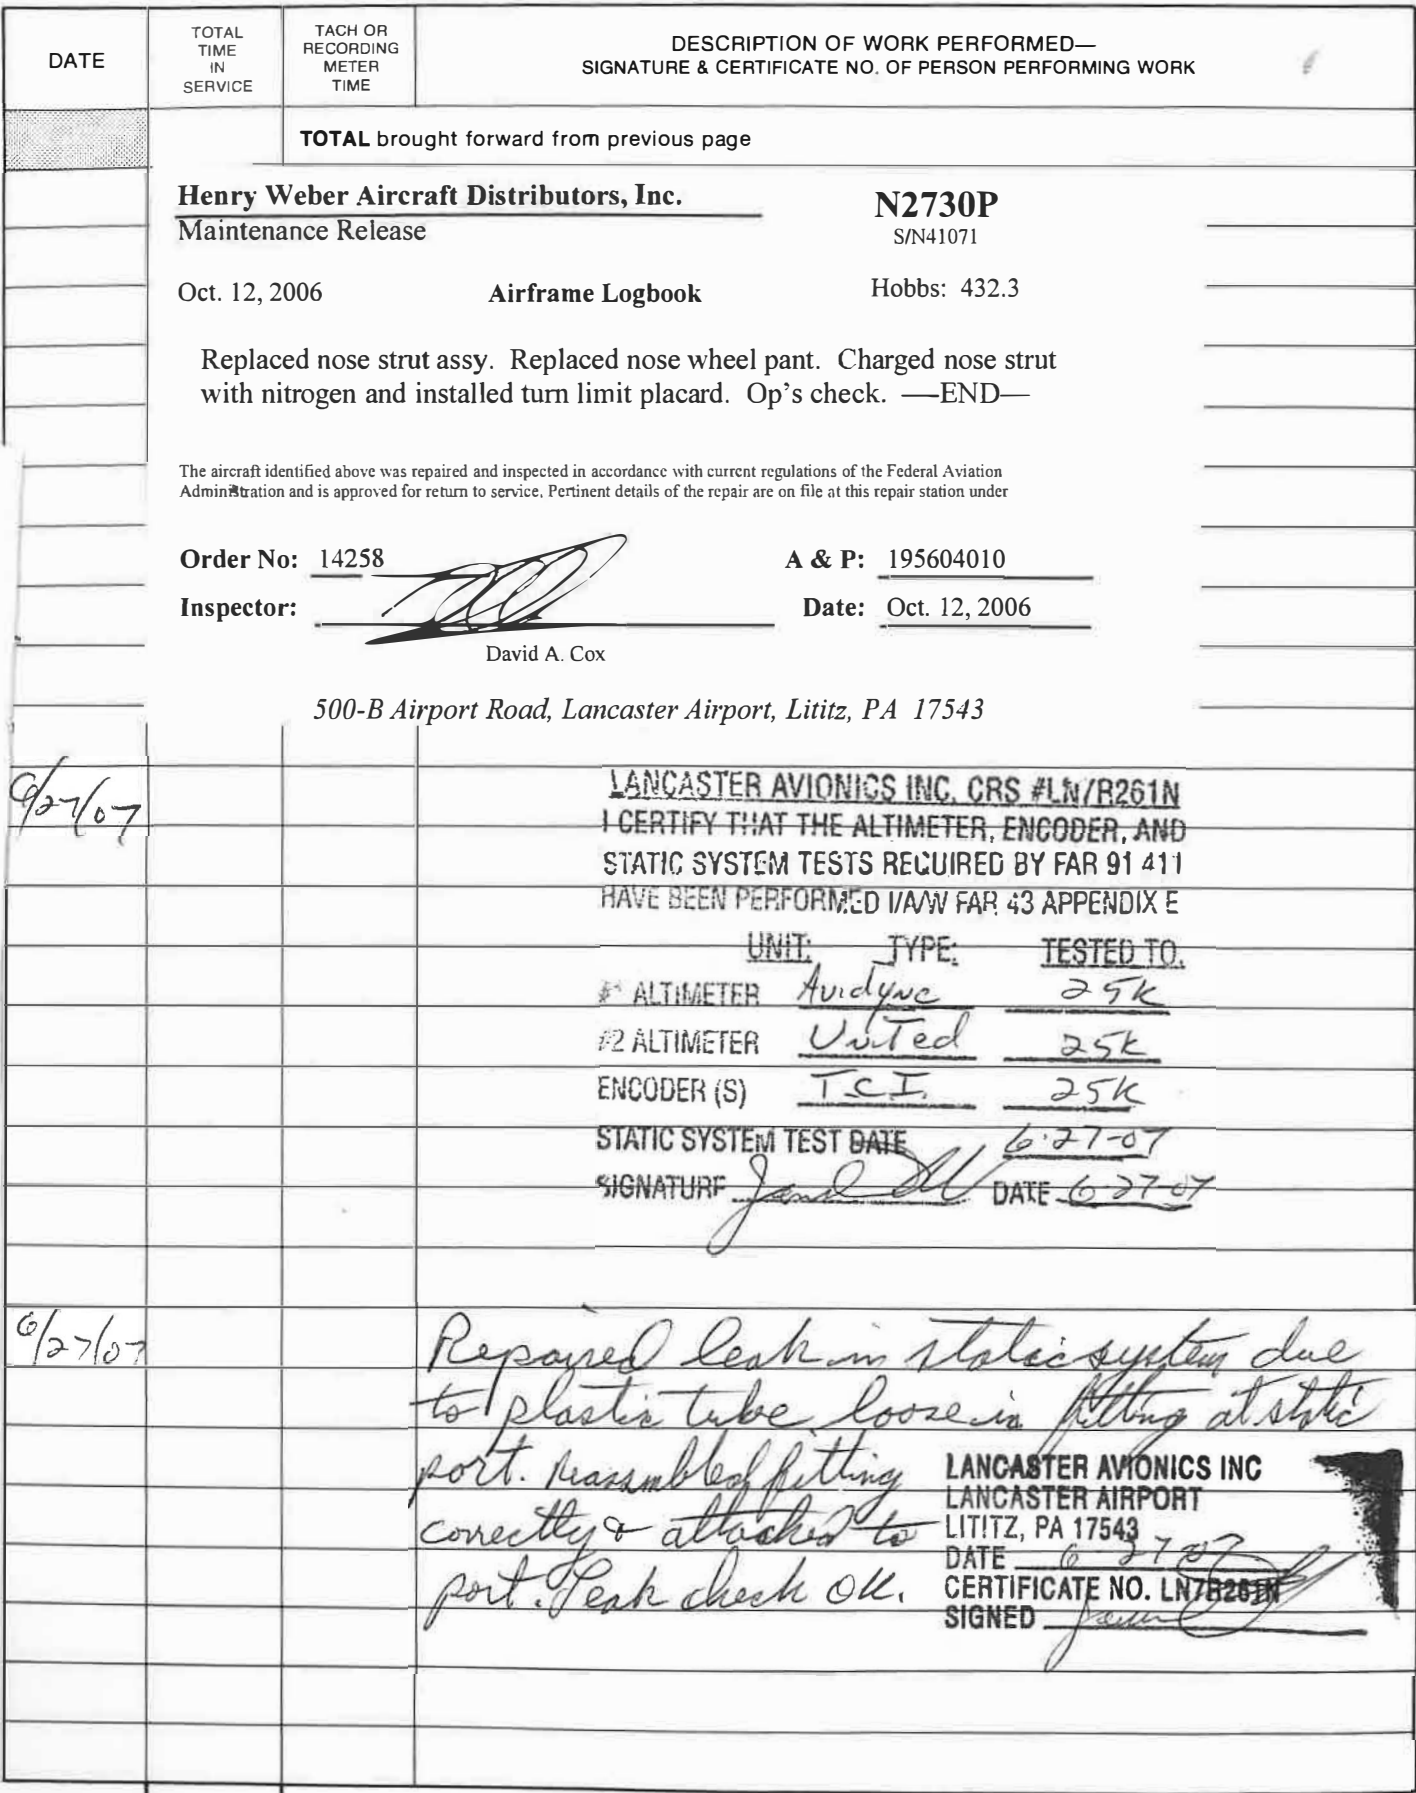 DATE
TOTAL
TIME
IN
SERVICE
TACH OR
RECORDING
METER
TIME
DESCRIPTION OF WORK PERFORMED—
SIGNATURE & CERTIFICATE NO. OF PERSON PERFORMING WORK
TOTAL brought forward from previous page
Henry Weber Aircraft Distributors, Inc.
Maintenance Release
N2730P
S/N41071
Oct. 12, 2006 Airframe Logbook Hobbs: 432.3
Replaced nose strut assy. Replaced nose wheel pant. Charged nose strut
with nitrogen and installed turn limit placard. Op's check. —END—
The aircraft identified above was repaired and inspected in accordance with current regulations of the Federal Aviation
Administration and is approved for return to service. Pertinent details of the repair are on file at this repair station under
Order No: 14258 A & P: 195604010
Inspector: Date: Oct. 12, 2006
David A. Cox
500-B Airport Road, Lancaster Airport, Lititz, PA 17543
6/27/07
LANCASTER AVIONICS INC. CRS #LN7R261N
I CERTIFY THAT THE ALTIMETER, ENCODER, AND
STATIC SYSTEM TESTS REQUIRED BY FAR 91 411
HAVE BEEN PERFORMED I/A/W FAR 43 APPENDIX E
UNIT: TYPE: TESTED TO.
# ALTIMETER Avidyne 25K
#2 ALTIMETER United 25K
ENCODER (S) T.C.I. 25K
STATIC SYSTEM TEST DATE 6-27-07
SIGNATURE DATE 6-27-07
6/27/07
Repaired leak in static system due
to plastic tube loose in fitting at static
port. Reassmbled fitting
correctly & attached to
port. Leak check OK.
LANCASTER AVIONICS INC
LANCASTER AIRPORT
LITITZ, PA 17543
DATE 6-27-07
CERTIFICATE NO. LN7R261N
SIGNED